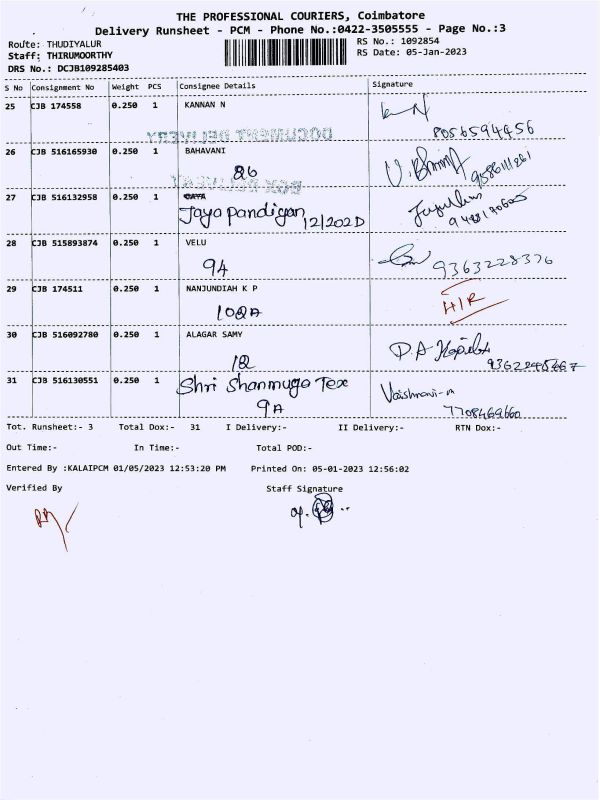 THE PROFESSIONAL COURIERS, Coimbatore
Delivery Runsheet - PCM - Phone No.:0422-3505555 - Page No.:3
Route: THUDIYALUR RS No.: 1092854
Staff: THIRUMOORTHY RS Date: 05-Jan-2023
DRS No.: DCJB109285403
S No Consignment No Weight PCS Consignee Details Signature
25 CJB 174558 0.250 1 KANNAN N
8056594456
DOCUMENT DELIVERY
26 CJB 516165930 0.250 1 BAHAVANI
86 9586111261
27 CJB 516132958 0.250 1
Jaya pandigan 12/202D
28 CJB 515893874 0.250 1 VELU
94 9363228376
29 CJB 174511 0.250 1 NANJUNDIAH K P
108A H/R
30 CJB 516092780 0.250 1 ALAGAR SAMY
18 9362245467
31 CJB 516130551 0.250 1 Shri Shanmuga Tex
9A Vaishnavi-m
7708469660
Tot. Runsheet:- 3 Total Dox:- 31 I Delivery:- II Delivery:- RTN Dox:-
Out Time:- In Time:- Total POD:-
Entered By :KALAIPCM 01/05/2023 12:53:20 PM Printed On: 05-01-2023 12:56:02
Verified By Staff Signature